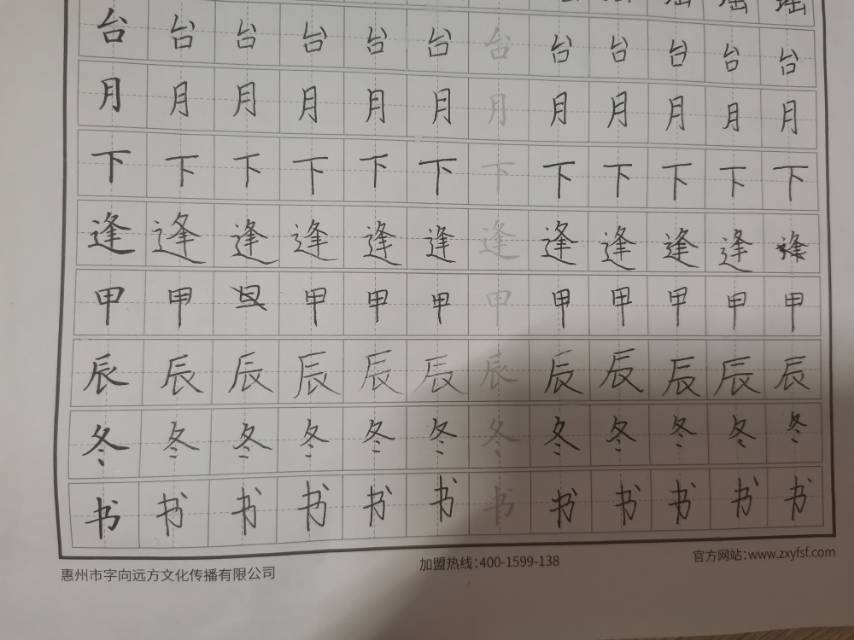 台 台 台 台 台 台 台 台 台 台 台 台
月 月 月 月 月 月 月 月 月 月 月 月
下 下 下 下 下 下 下 下 下 下 下 下
逢 逢 逢 逢 逢 逢 逢 逢 逢 逢 逢 逢
甲 甲 甲 甲 甲 甲 甲 甲 甲 甲 甲
辰 辰 辰 辰 辰 辰 辰 辰 辰 辰 辰 辰
冬 冬 冬 冬 冬 冬 冬 冬 冬 冬 冬 冬
书 书 书 书 书 书 书 书 书 书 书 书
惠州市字向远方文化传播有限公司 加盟热线:400-1599-138 官方网站:www.zxyfsf.com